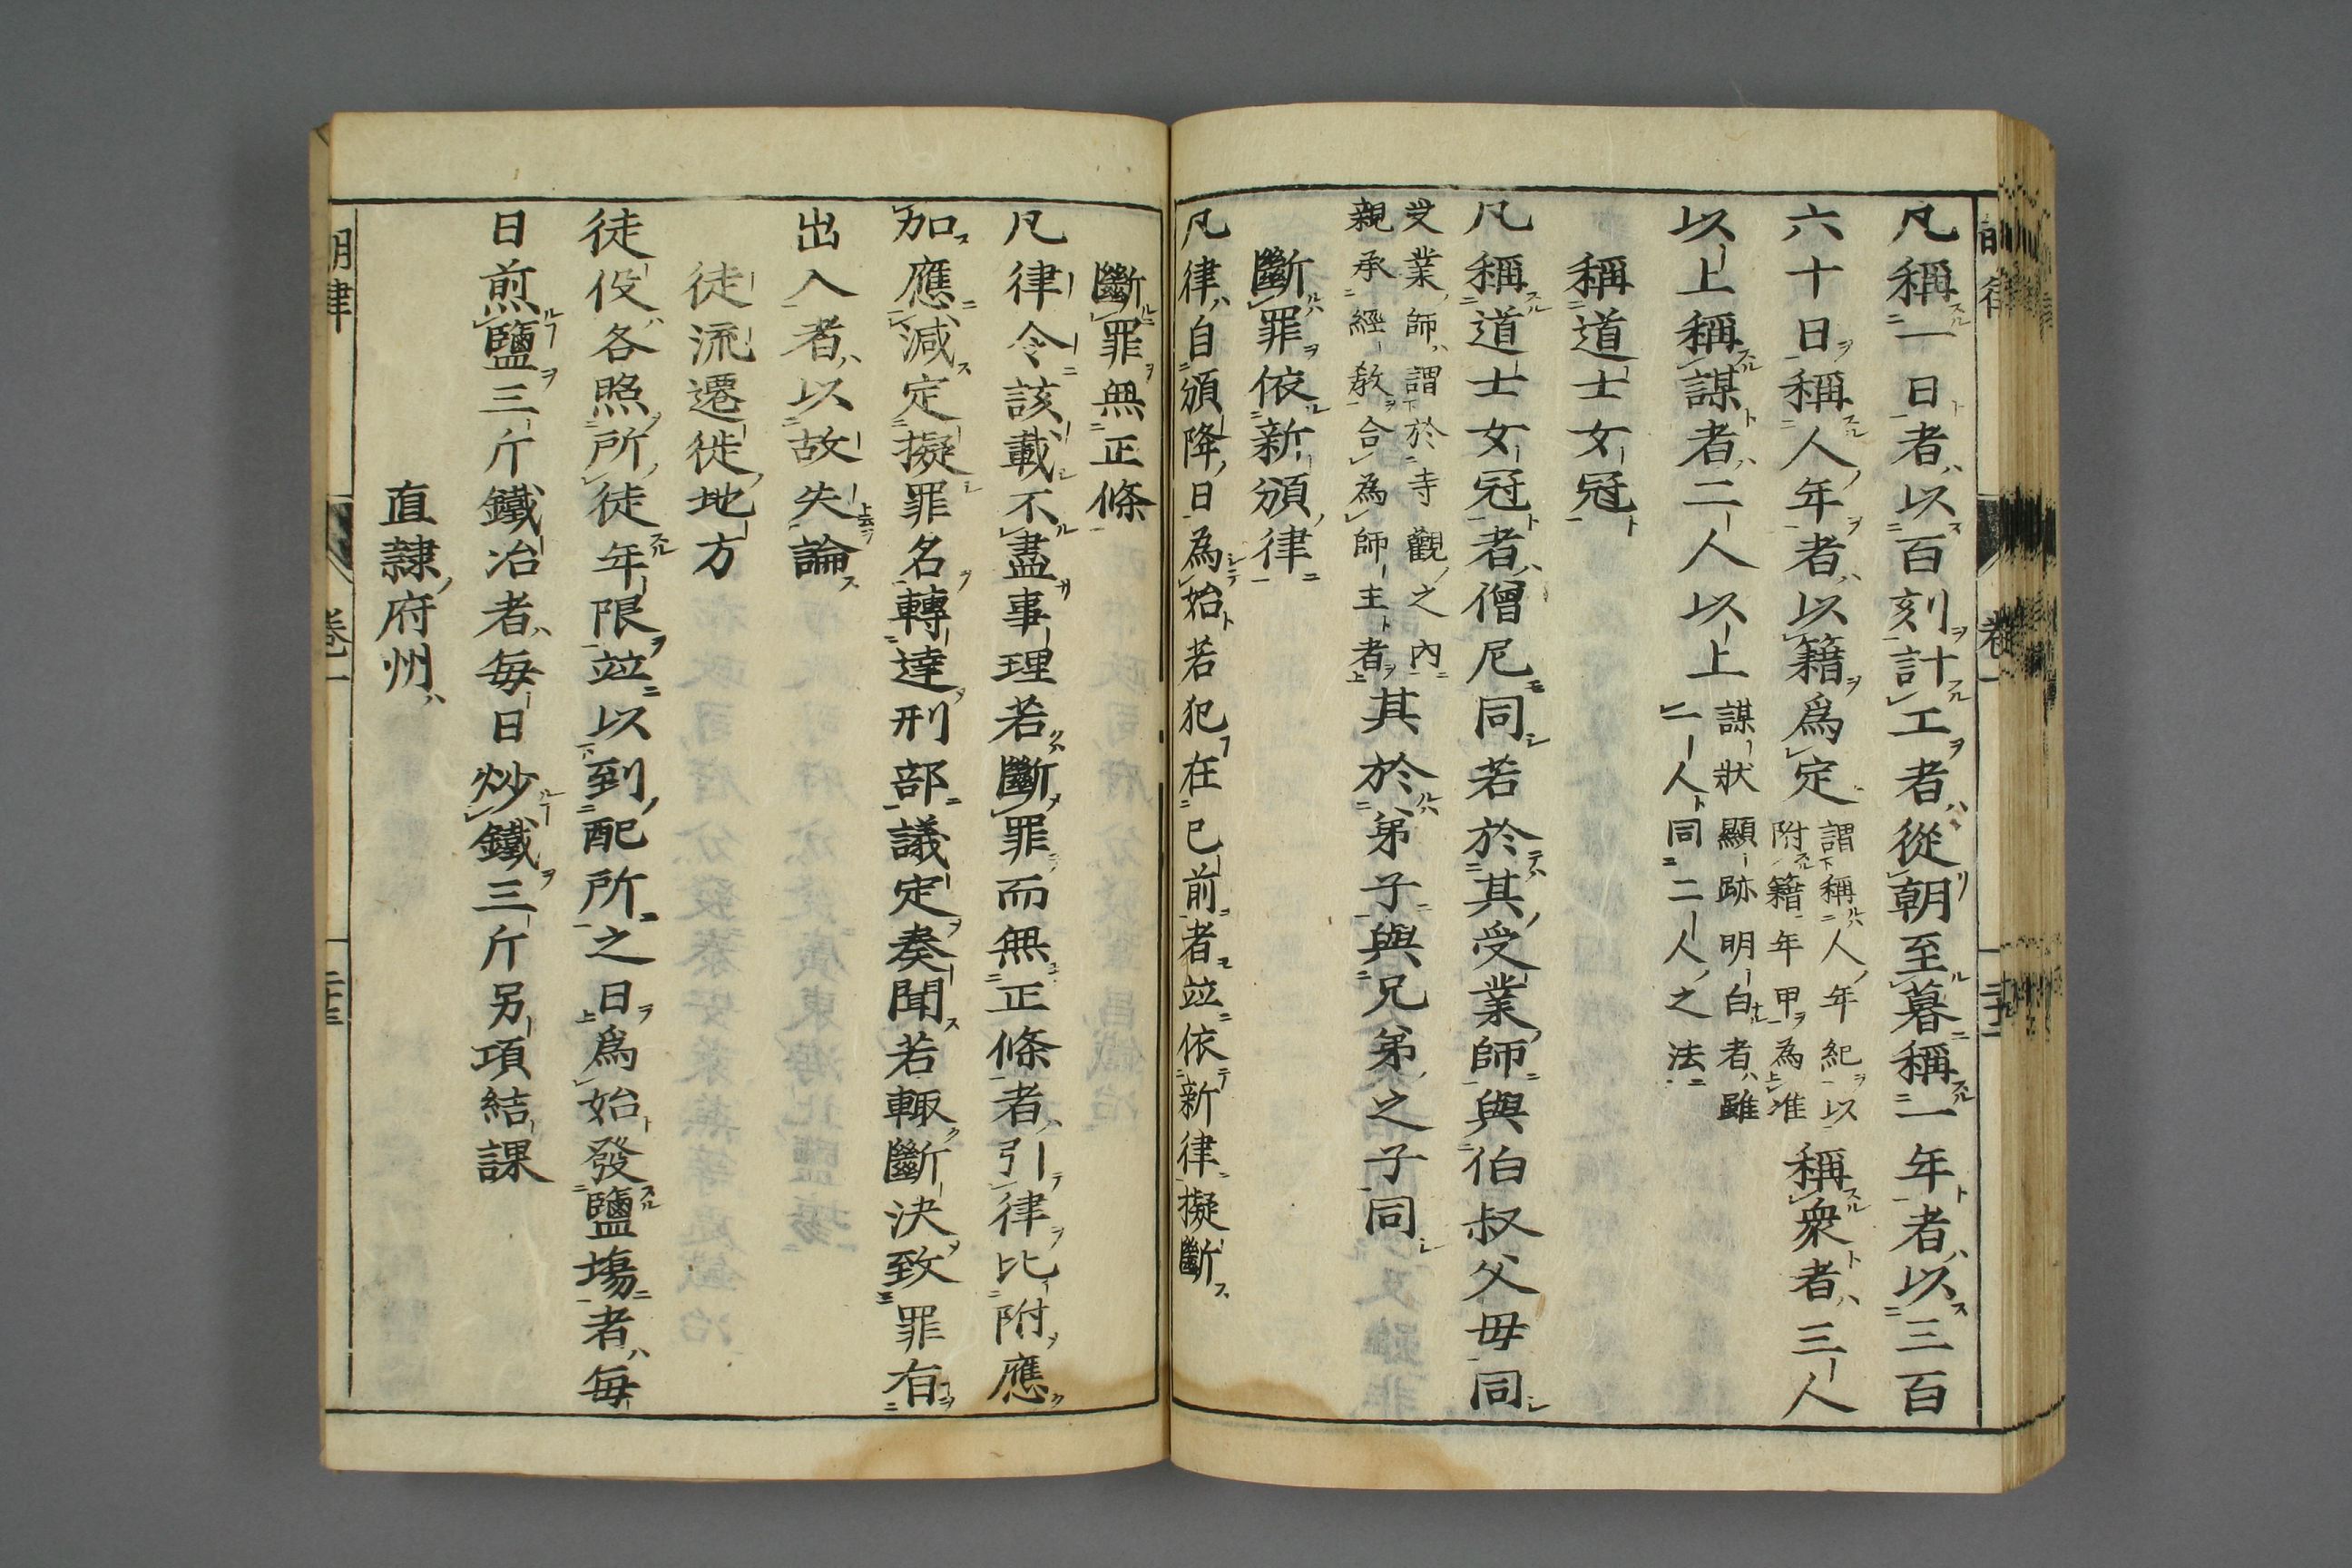 凡稱一日者以百刻計工者從朝至暮稱一年者以三百
六十日稱人年者以籍爲定謂稱人年紀以附籍年甲為准稱衆者三人
以上稱謀者二人以上謀狀顯跡明白者雖一人同二人之法
稱道士女冠
凡稱道士女冠者僧尼同若於其受業師與伯叔父母同
受業師謂於寺觀之內親承經教合為師主者其於弟子與兄弟之子同
斷罪依新頒律
凡律自頒降日為始若犯在已前者竝依新律擬斷
斷罪無正條
凡律令該載不盡事理若斷罪而無正條者引律比附應
加應減定擬罪名轉達刑部議定奏聞若輒斷決致罪有
出入者以故失論
徒流遷徙地方
徒役各照所徒年限竝以到配所之日爲始發鹽場者每
日煎鹽三斤鐵冶者每日炒鐵三斤另項結課
直隸府州
明律
卷一
二十三